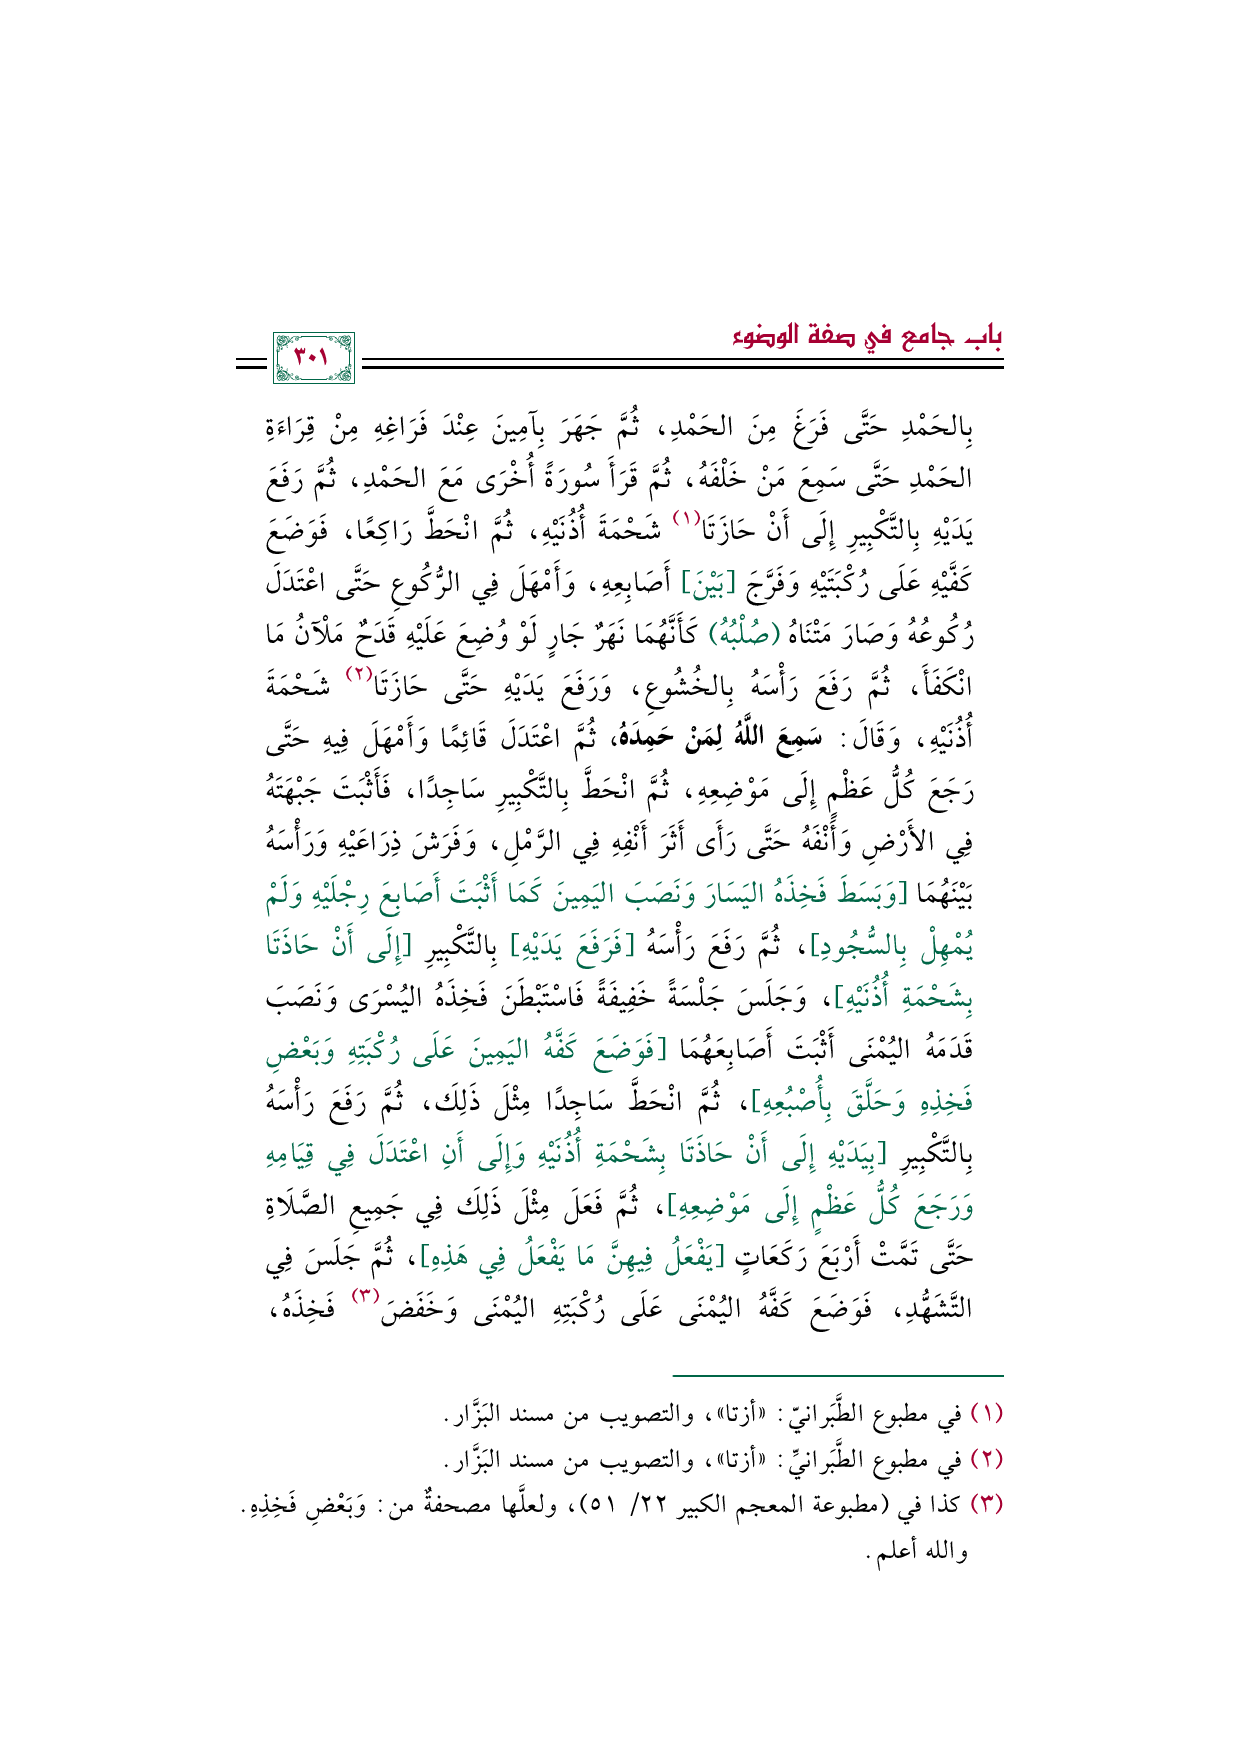 باب جامع في صفة الوضوء
٣٠١
بِالحَمْدِ حَتَّى فَرَغَ مِنَ الحَمْدِ، ثُمَّ جَهَرَ بِآمِينَ عِنْدَ فَرَاغِهِ مِنْ قِرَاءَةِ
الحَمْدِ حَتَّى سَمِعَ مَنْ خَلْفَهُ، ثُمَّ قَرَأَ سُورَةً أُخْرَى مَعَ الحَمْدِ، ثُمَّ رَفَعَ
يَدَيْهِ بِالتَّكْبِيرِ إِلَى أَنْ حَازَتَا(١) شَحْمَةَ أُذُنَيْهِ، ثُمَّ انْحَطَّ رَاكِعًا، فَوَضَعَ
كَفَّيْهِ عَلَى رُكْبَتَيْهِ وَفَرَّجَ [بَيْنَ] أَصَابِعِهِ، وَأَمْهَلَ فِي الرُّكُوعِ حَتَّى اعْتَدَلَ
رُكُوعُهُ وَصَارَ مَتْنَاهُ (صُلْبُهُ) كَأَنَّهُمَا نَهَرٌ جَارٍ لَوْ وُضِعَ عَلَيْهِ قَدَحٌ مَلْآنُ مَا
انْكَفَأَ، ثُمَّ رَفَعَ رَأْسَهُ بِالخُشُوعِ، وَرَفَعَ يَدَيْهِ حَتَّى حَازَتَا(٢) شَحْمَةَ
أُذُنَيْهِ، وَقَالَ: سَمِعَ اللَّهُ لِمَنْ حَمِدَهُ، ثُمَّ اعْتَدَلَ قَائِمًا وَأَمْهَلَ فِيهِ حَتَّى
رَجَعَ كُلُّ عَظْمٍ إِلَى مَوْضِعِهِ، ثُمَّ انْحَطَّ بِالتَّكْبِيرِ سَاجِدًا، فَأَثْبَتَ جَبْهَتَهُ
فِي الأَرْضِ وَأَنْفَهُ حَتَّى رَأَى أَثَرَ أَنْفِهِ فِي الرَّمْلِ، وَفَرَشَ ذِرَاعَيْهِ وَرَأْسَهُ
بَيْنَهُمَا [وَبَسَطَ فَخِذَهُ اليَسَارَ وَنَصَبَ اليَمِينَ كَمَا أَثْبَتَ أَصَابِعَ رِجْلَيْهِ وَلَمْ
يُمْهِلْ بِالسُّجُودِ]، ثُمَّ رَفَعَ رَأْسَهُ [فَرَفَعَ يَدَيْهِ] بِالتَّكْبِيرِ [إِلَى أَنْ حَاذَتَا
بِشَحْمَةِ أُذُنَيْهِ]، وَجَلَسَ جَلْسَةً خَفِيفَةً فَاسْتَبْطَنَ فَخِذَهُ اليُسْرَى وَنَصَبَ
قَدَمَهُ اليُمْنَى أَثْبَتَ أَصَابِعَهُمَا [فَوَضَعَ كَفَّهُ اليَمِينَ عَلَى رُكْبَتِهِ وَبَعْضِ
فَخِذِهِ وَحَلَّقَ بِأُصْبُعِهِ]، ثُمَّ انْحَطَّ سَاجِدًا مِثْلَ ذَلِكَ، ثُمَّ رَفَعَ رَأْسَهُ
بِالتَّكْبِيرِ [بِيَدَيْهِ إِلَى أَنْ حَاذَتَا بِشَحْمَةِ أُذُنَيْهِ وَإِلَى أَنِ اعْتَدَلَ فِي قِيَامِهِ
وَرَجَعَ كُلُّ عَظْمٍ إِلَى مَوْضِعِهِ]، ثُمَّ فَعَلَ مِثْلَ ذَلِكَ فِي جَمِيعِ الصَّلَاةِ
حَتَّى تَمَّتْ أَرْبَعَ رَكَعَاتٍ [يَفْعَلُ فِيهِنَّ مَا يَفْعَلُ فِي هَذِهِ]، ثُمَّ جَلَسَ فِي
التَّشَهُّدِ، فَوَضَعَ كَفَّهُ اليُمْنَى عَلَى رُكْبَتِهِ اليُمْنَى وَخَفَضَ(٣) فَخِذَهُ،
(١) في مطبوع الطَّبَرانيّ: «أزتا»، والتصويب من مسند البَزَّار.
(٢) في مطبوع الطَّبَرانيِّ: «أزتا»، والتصويب من مسند البَزَّار.
(٣) كذا في (مطبوعة المعجم الكبير ٢٢/ ٥١)، ولعلَّها مصحفةٌ من: وَبَعْضِ فَخِذِهِ.
والله أعلم.